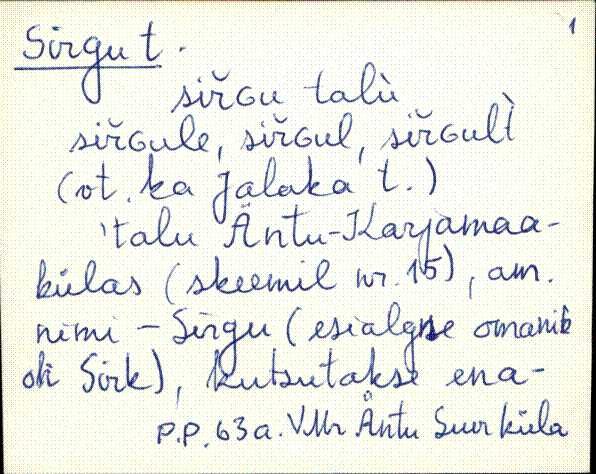 1
Sirgu t.
sir̆Gu talù
sir̆Gule, sir̆Gul, sir̆Gulì
(vt. ka Jalaka t.)
'talu Äntu-Karjamaa-
külas (skeemil nr. 15), am.
nimi - Sirgu (esialgne omanik
oli Sirk), kutsutakse ena-
P.P. 63a. VMr Äntu Suurküla